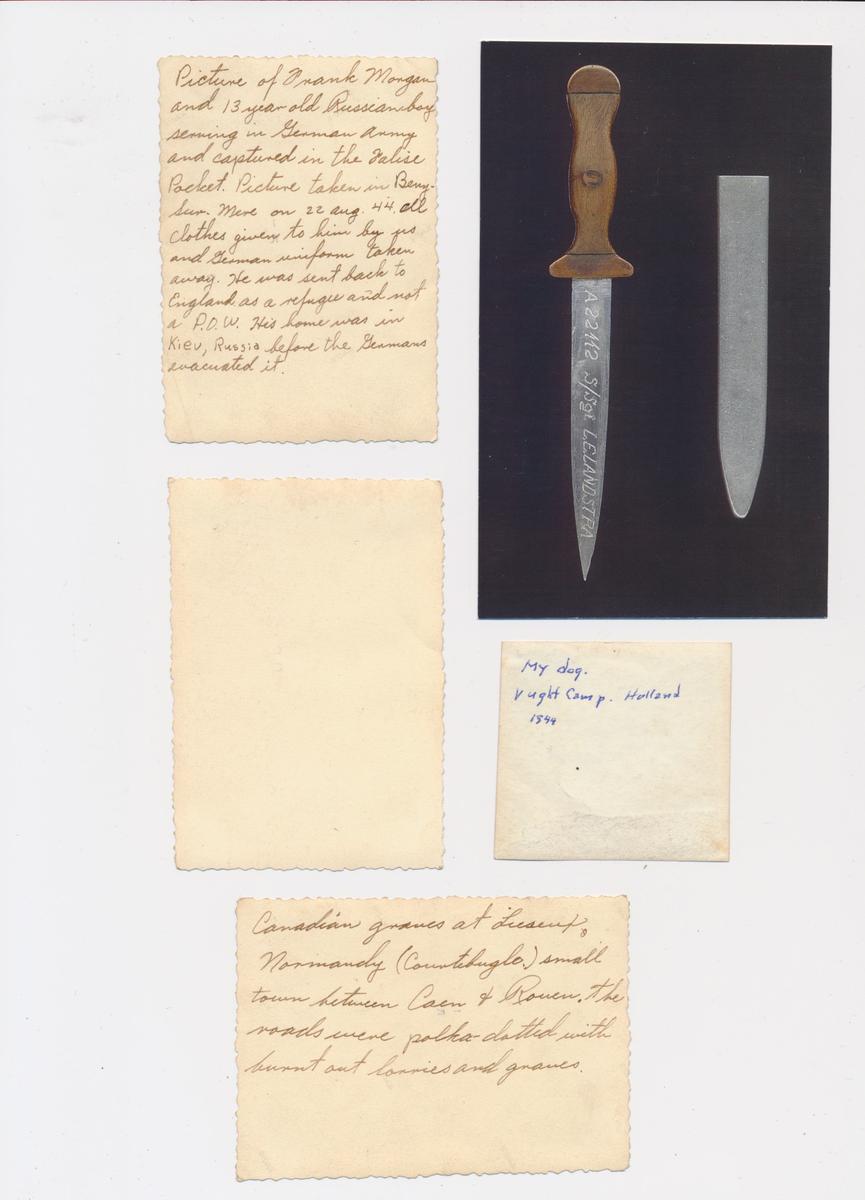 Picture of Frank Morgan
and 13 year old Russian boy
serving in German Army
and captured in the Falise
Pocket. Picture taken in Beny-
Sur. Mere on 22 aug. 44. all
clothes given to him by us
and German uniform taken
away. He was sent back to
England as a refugee and not
a P.O.W. His home was in
Kiev, Russia before the Germans
evacuated it.
A22112 S/Sgt LELANDSTRA
My dog.
Vught Camp. Holland
1944
Canadian graves at
Normandy (Courtebugle.) small
town between Caen & Rouen. The
roads were polka-dotted with
burnt out lorries and graves.